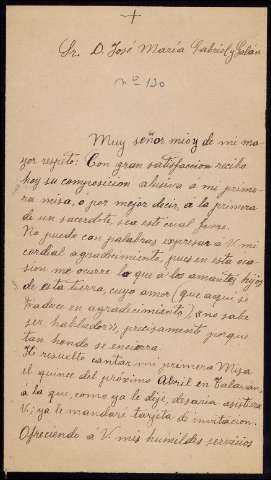 +
Sr. D. José María Gabriel y Galán
nº 130
Muy señor mio y de mi ma
yor respeto: Con gran satisfaccion recibo
hoy su composicion alusiva a mi prime-
ra misa, o por mejor decir, a la primera
de un sacerdote, sea este cual fuere.
No puedo con palabras expresar a V. mi
cordial agradecimiento, pues en esta oca-
sion me ocurre lo que á los amantes hijos
de esta tierra, cuyo amor (que aqui se
traduce en agradecimiento) no sabe
ser hablador, precisamente porque
tan hondo se encierra.
He resuelto cantar mi primera Misa
el quince del próximo Abril en Talavan,
á la que, como ya le dije, desaria asistiera
V.; ya le mandaré tarjeta de invitacion.
Ofreciendo á V. mis humildes servicios